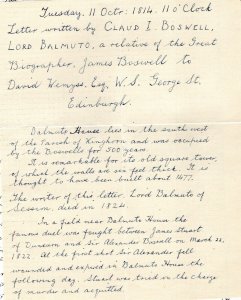 Tuesday, 11 Octr. 1814. 11 o'Clock
Letter written by CLAUD I. BOSWELL,
LORD BALMUTO, a relative of the Great
Biographer, James Boswell to
David Wemyss, Esq, W.S. George St,
Edinburgh.
Balmuto House lies in the south west
of the Parish of Kinghorn and was occupied
by the Boswells for 500 years
It is remarkable for its old square tower,
of which the walls are six feet thick. It is
thought to have been built about 1477.
The writer of this letter, Lord Balmuto of
Session, died in 1824.
In a field near Balmuto House the
famous duel was fought between James Stuart
of Dunearn and Sir Alexander Boswell on March 26,
1822. At the first shot Sir Alexander fell
wounded and expired in Balmuto House the
following day. Stuart was tried on the charge
of murder and acquitted.